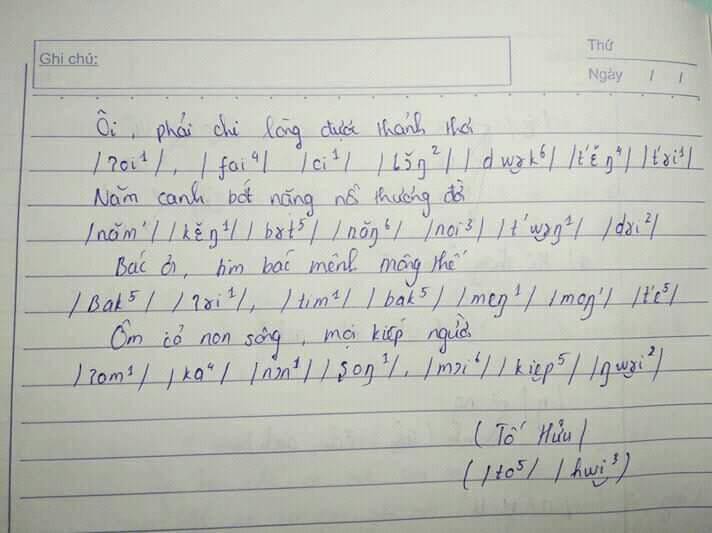 Ghi chú:
Thứ
Ngày / /
Ôi, phải chi lòng được thảnh thơi
/ʔoi¹/, /fai⁴/ /ci¹/ /lɔ̆ŋ²/ /dɯɤk⁶/ /t'ĕŋ⁴/ /t'ɤi¹/
Năm canh bớt nặng nỗi thương đời
/năm¹/ /kĕŋ¹/ /bɤt⁵/ /năŋ⁶/ /noi³/ /t'ɯɤŋ¹/ /dɤi²/
Bác ơi, tim bác mênh mông thế
/Bak⁵/ /ʔɤi¹/, /tim¹/ /bak⁵/ /meŋ¹/ /moŋ¹/ /t'e⁵/
Ôm cả non sông, mọi kiếp người
/ʔom¹/ /ka⁴/ /nɔn¹/ /ʂoŋ¹/, /mɔi⁶/ /kiep⁵/ /ŋɯɤi²/
(Tố Hữu)
(/to⁵/ /hɯi³/)